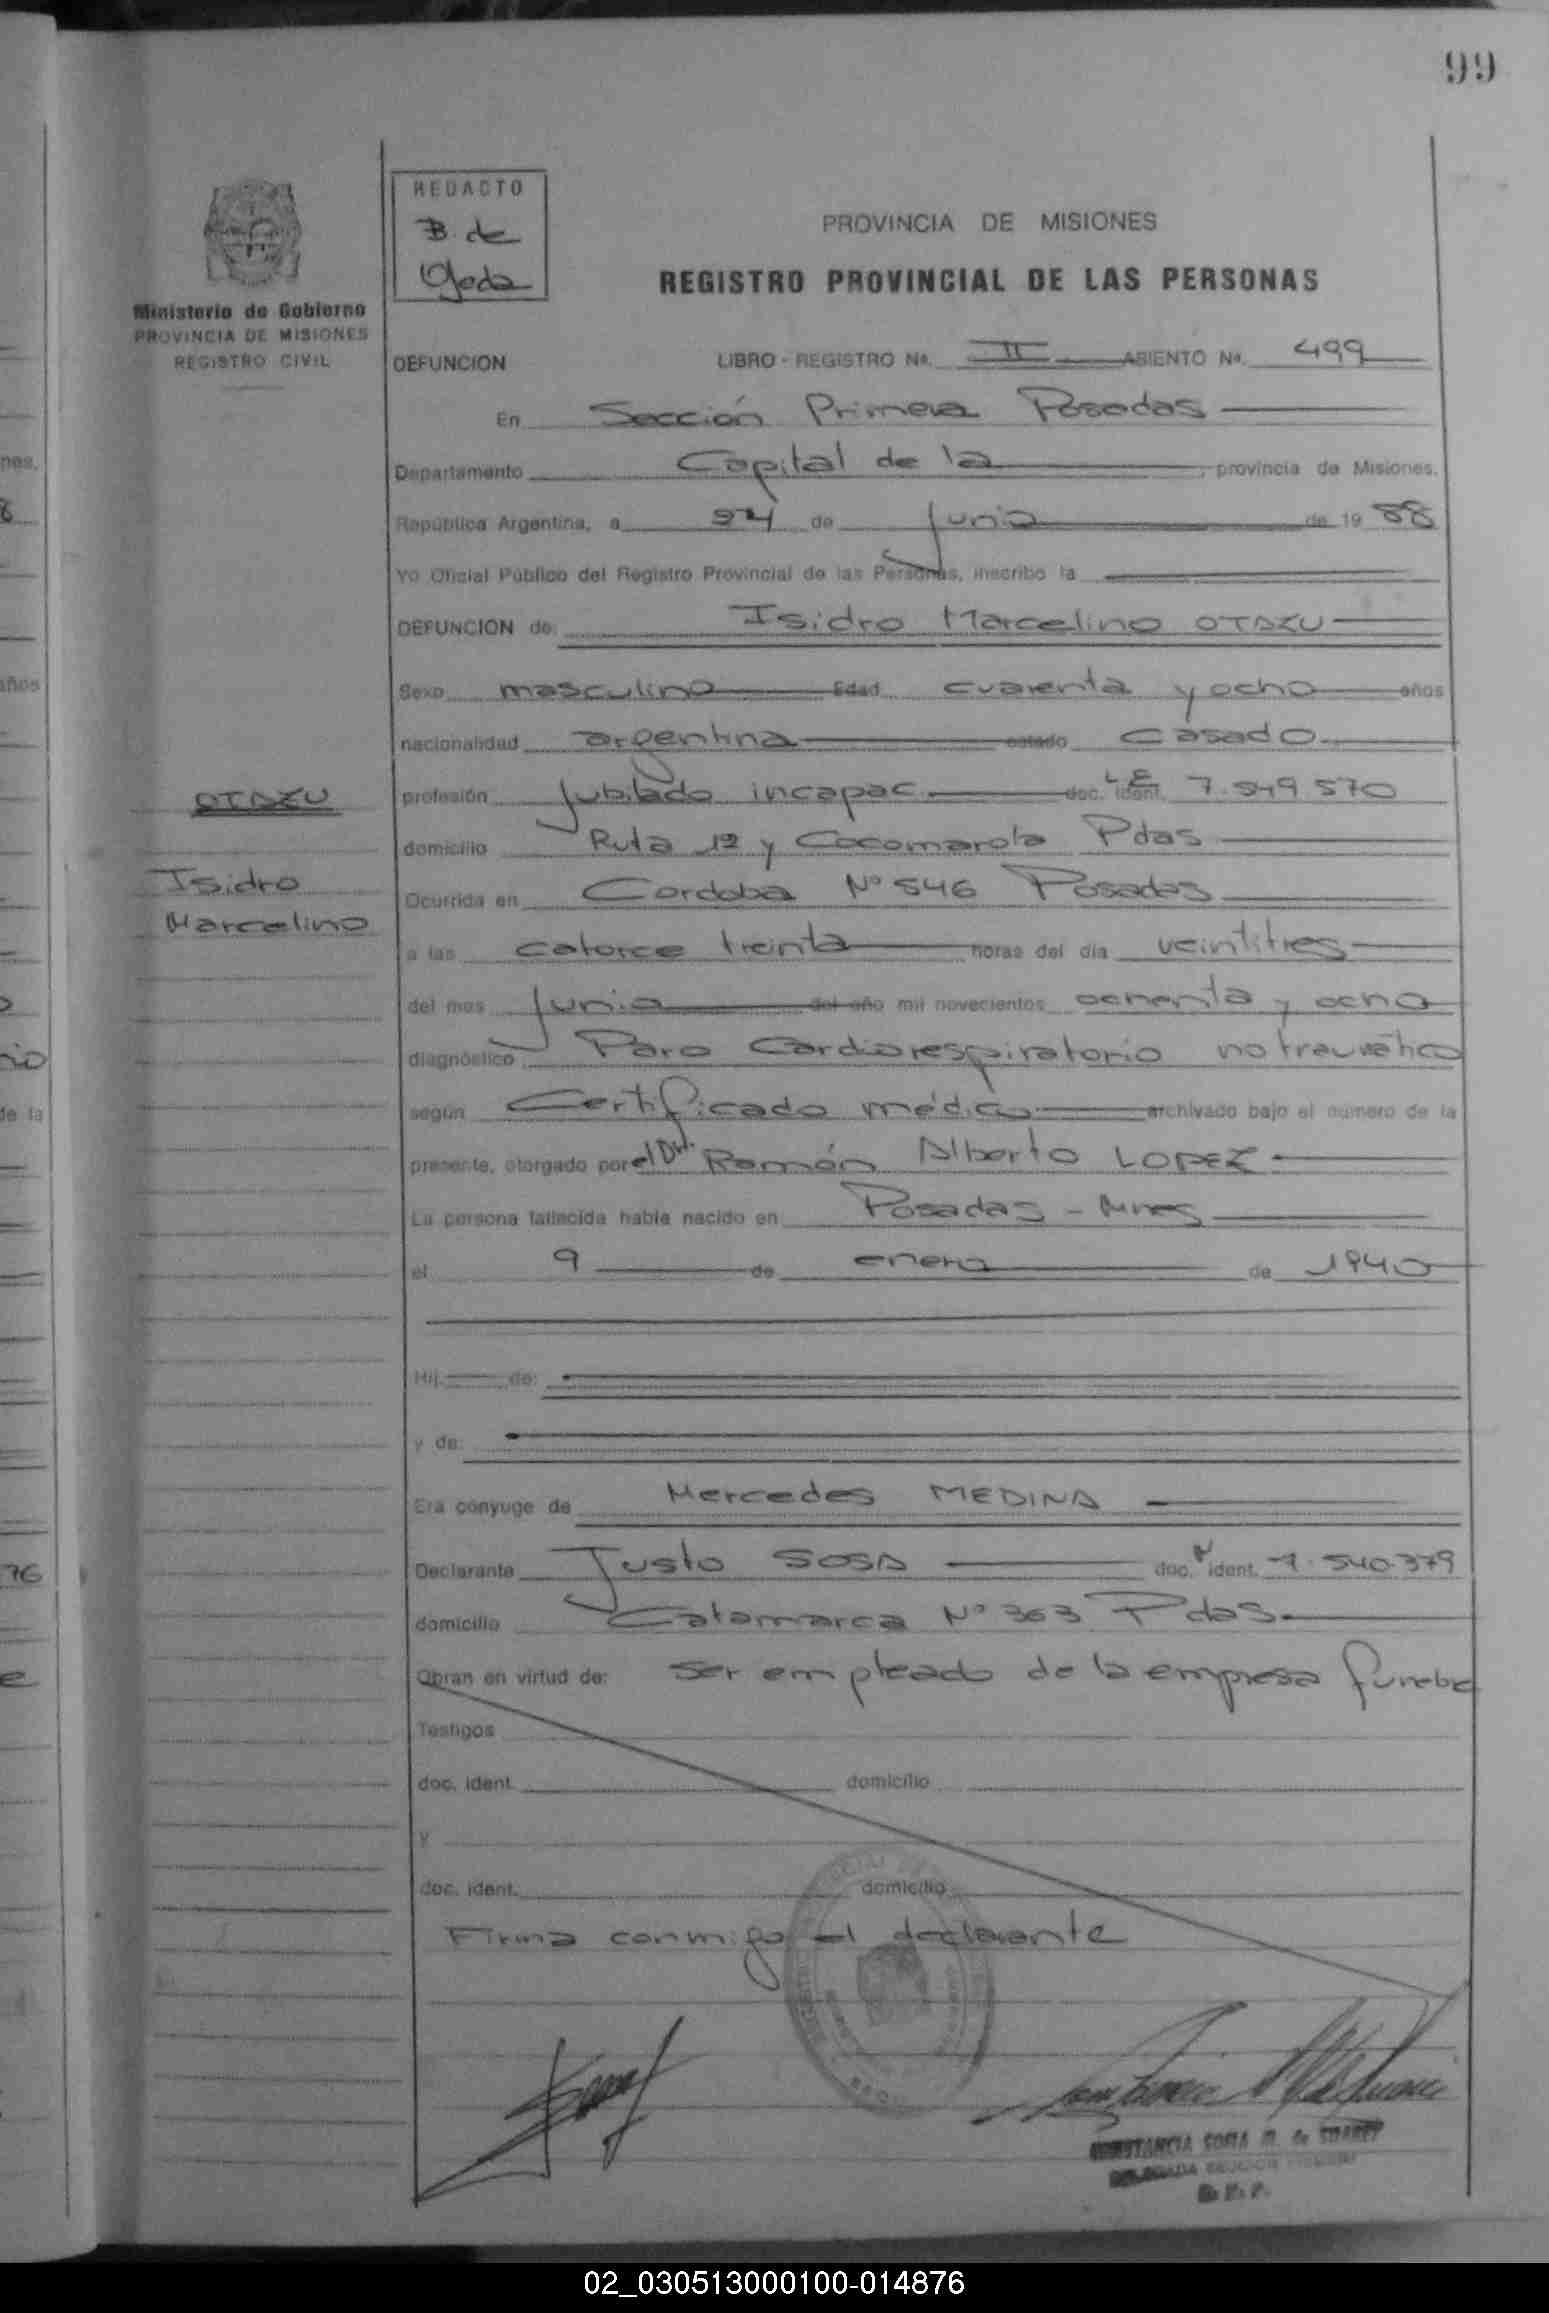 99
REDACTO
B. de
Ojeda
Ministerio de Gobierno
PROVINCIA DE MISIONES
REGISTRO CIVIL
PROVINCIA DE MISIONES
REGISTRO PROVINCIAL DE LAS PERSONAS
DEFUNCION LIBRO - REGISTRO No. II ASIENTO No. 499
En Sección Primera Posadas
Departamento Capital de la provincia de Misiones.
República Argentina, a 24 de junio de 19 88
Yo Oficial Público del Registro Provincial de las Personas, inscribo la
DEFUNCION de: Isidro Marcelino OTAZU
Sexo masculino Edad cuarenta y ocho años
nacionalidad argentina estado casado
OTAZU
Isidro
Marcelino
profesión jubilado incapac. doc. ident. L E 7.549 570
domicilio Ruta 12 y Cocomarola Pdas
Ocurrida en Cordoba Nº 546 Posadas
a las catorce treinta horas del día veintitres
del mes junio del año mil novecientos ochenta y ocho
diagnóstico Paro Cardiorespiratorio no traumático
según Certificado médico archivado bajo el número de la
presente, otorgado por el Dr. Ramón Alberto LOPEZ
La persona fallecida había nacido en Posadas - Mnes
el 9 de enero de 1940
Hij de:
y de:
Era cónyuge de Mercedes MEDINA
Declarante Justo SOSA doc. ident. 540.379
domicilio Catamarca Nº 363 Pdas
Obran en virtud de: ser empleado de la empresa funebre
Testigos
doc. ident. domicilio
y
doc. ident. domicilio
Firma conmigo el declarante
CONSTANCIA SOFIA M. de SUAREZ
DELEGADA SECCION PRIMERA
R. P. P.
02_030513000100-014876